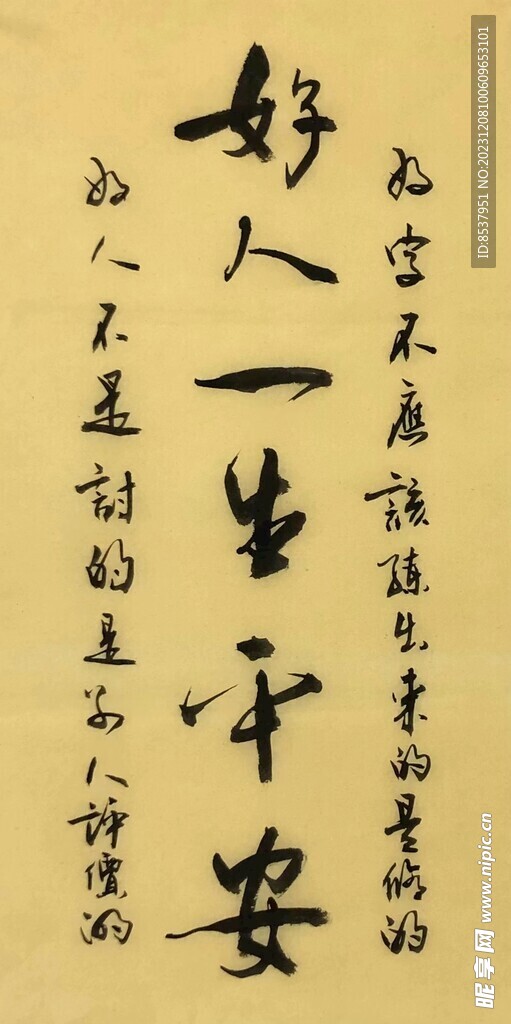 好字不應該練出來的是修的
好人一生平安
好人不是討的是別人評價的
ID:8537951 NO:20231208100609653101
昵享网 www.nipic.cn